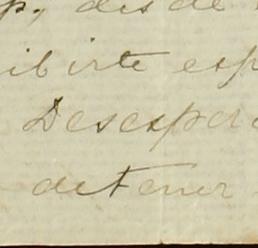 p., desde
ibirte esp
Desesper
detener